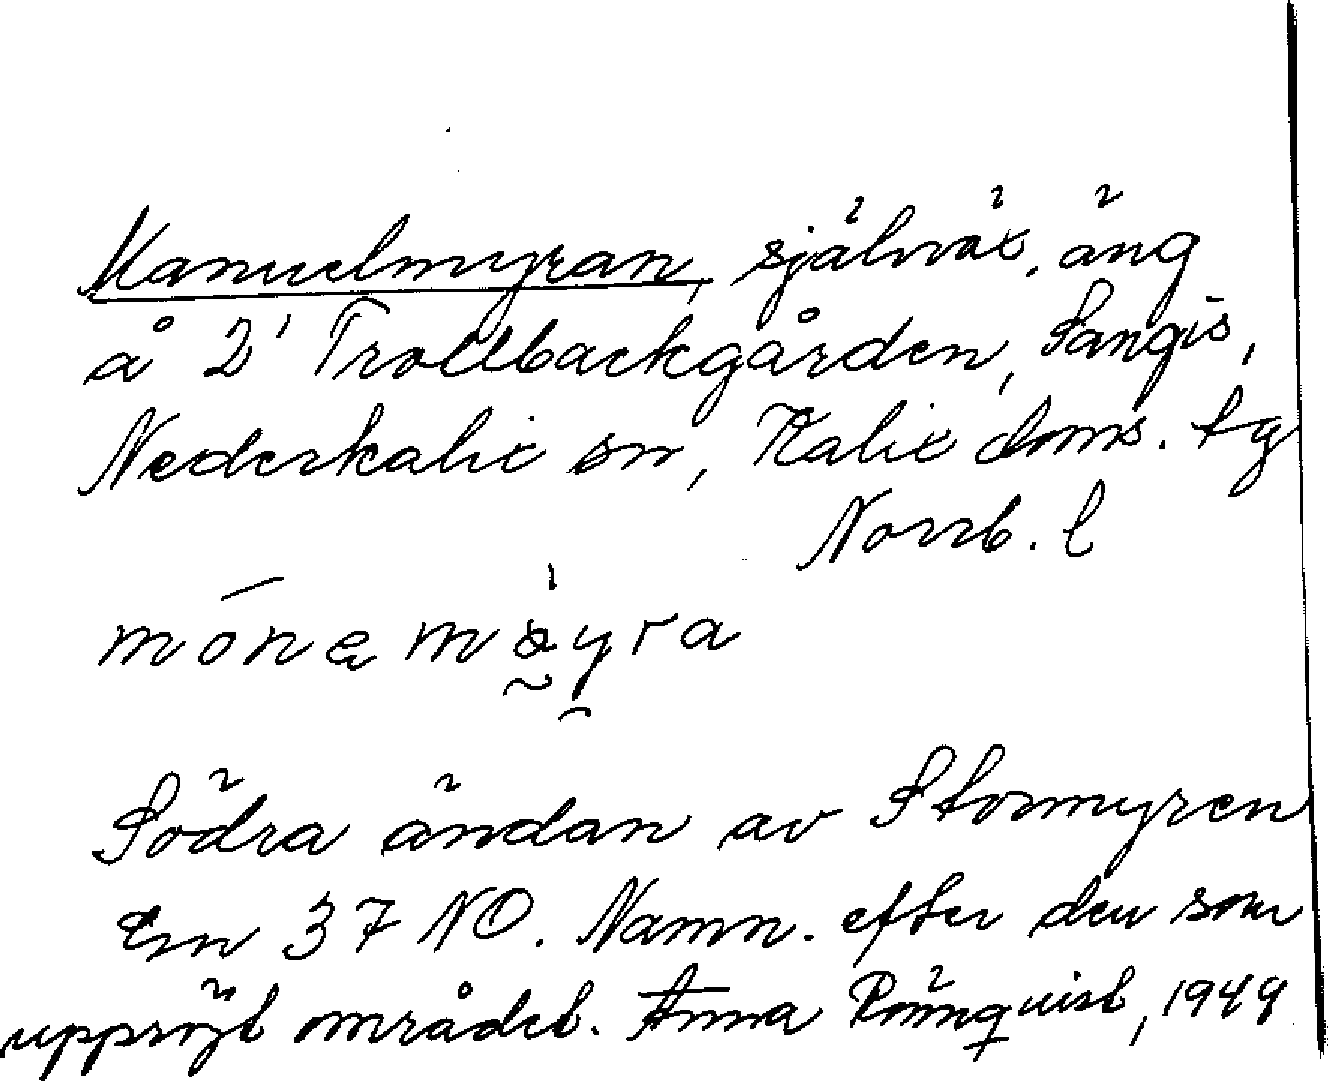 Manuelmyran, självväx. äng
å 2¹ Trollbackgården, Sangis,
Nederkalix sn, Kalix doms. tg
Norrb. l
Södra ändan av Stormyren
Em 37 NO. Namn. efter den som
uppröjt området. Anna Rönnquist, 1949